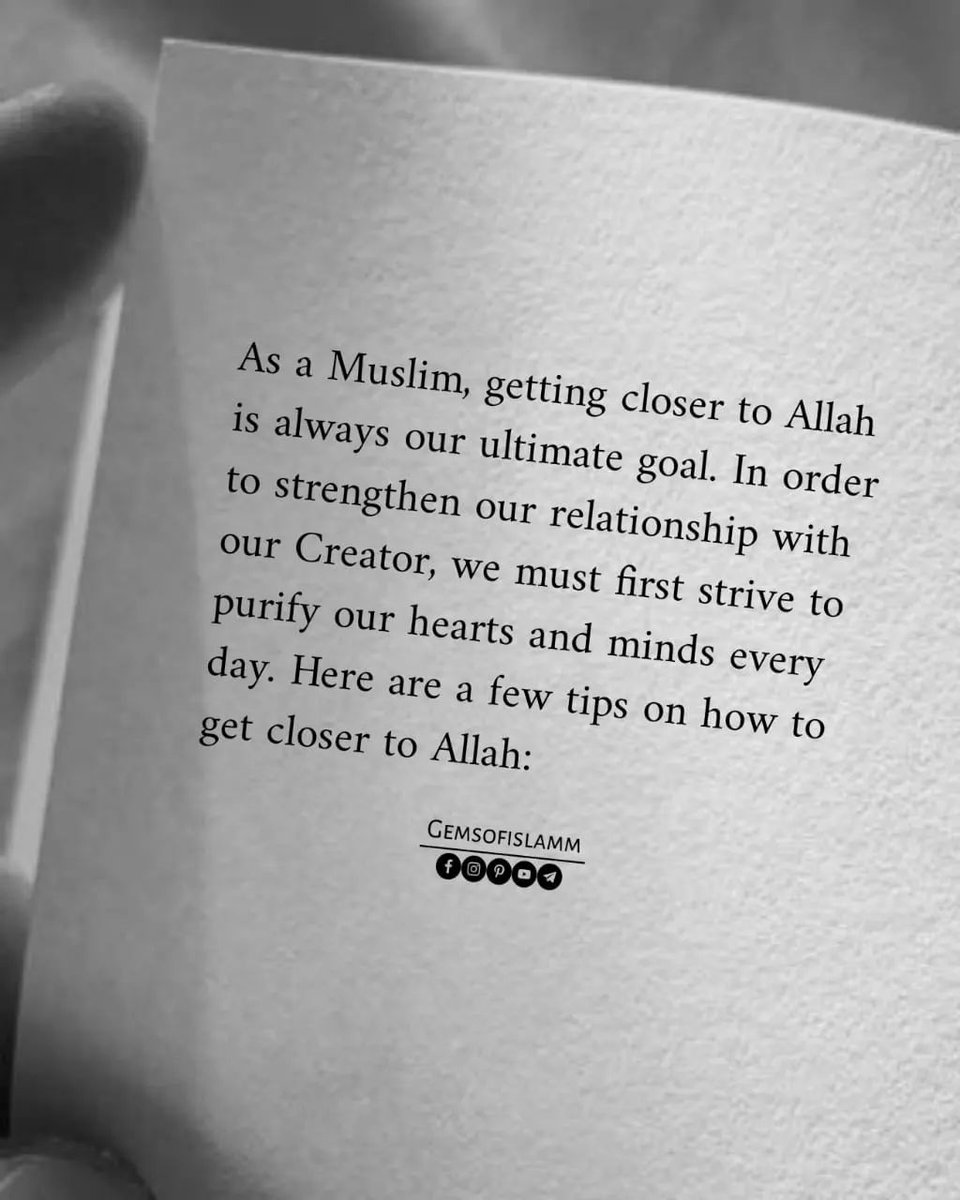 As a Muslim, getting closer to Allah
is always our ultimate goal. In order
to strengthen our relationship with
our Creator, we must first strive to
purify our hearts and minds every
day. Here are a few tips on how to
get closer to Allah:
GEMSOFISLAMM